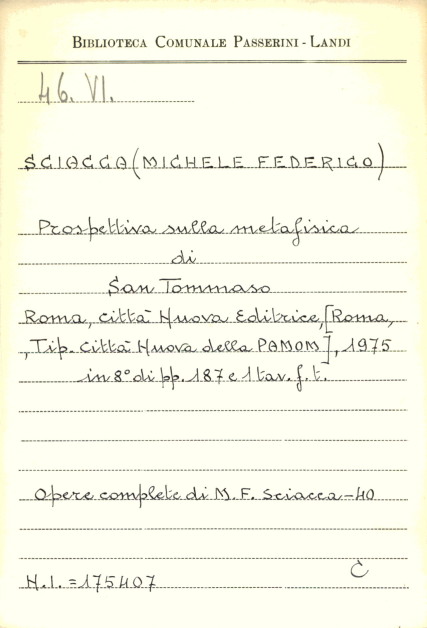 BIBLIOTECA COMUNALE PASSERINI - LANDI
46. VI.
SCIACCA (MICHELE FEDERICO)
Prospettiva sulla metafisica
di
San Tommaso
Roma, Città Nuova Editrice, [Roma,
, Tip. Città Nuova della PAMOM], 1975
in 8° di pp. 187 e 1 tav. f. t.
Opere complete di M. F. Sciacca - 40
C
N.I. = 175407